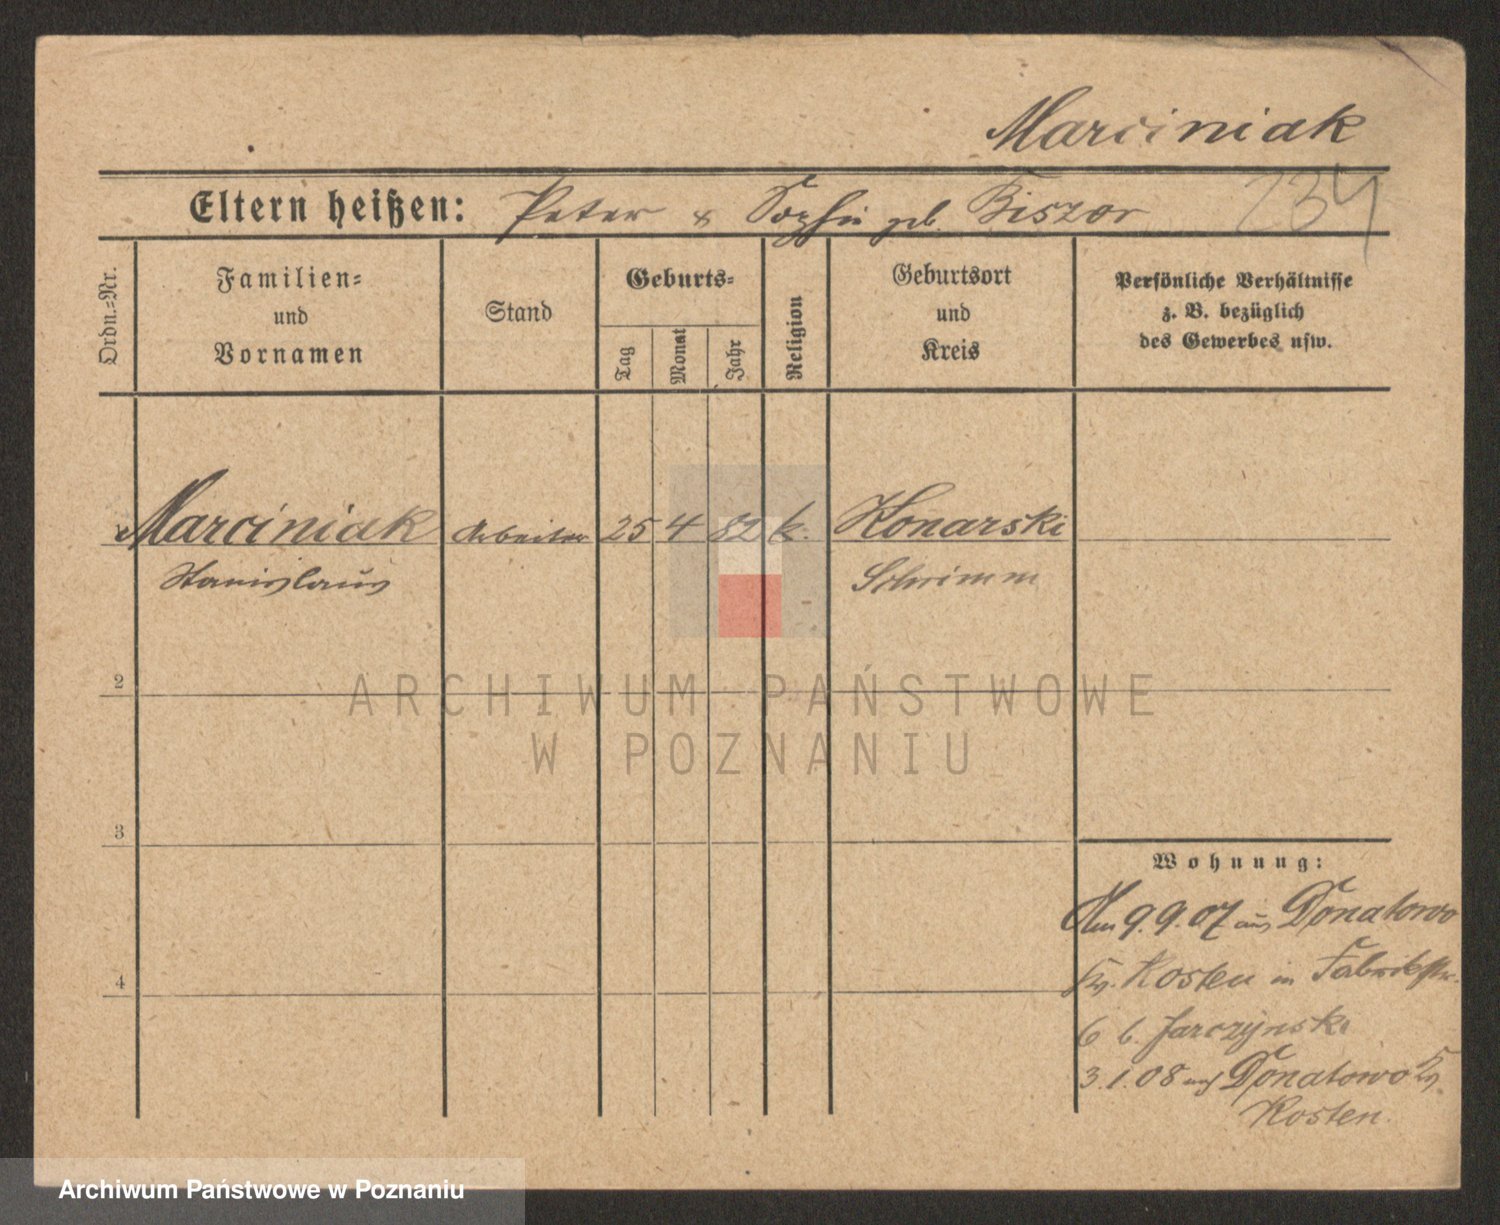 Marciniak
234
Eltern heißen: Peter & Sophie geb. Biszor
Ordn.-Nr.
Familien-
und
Vornamen
Stand
Geburts-
Tag
Monat
Jahr
Religion
Geburtsort
und
Kreis
Persönliche Verhältnisse
z. B. bezüglich
des Gewerbes usw.
Marciniak Arbeiter 25 4 82 k. Konarski
Stanislaus Schrimm
2
ARCHIWUM PAŃSTWOWE
W POZNANIU
3
Wohnung:
Am 9.9.07 aus Donatowo
4
Kr. Kosten in Fabrikstr.
6 b. Jarczynski
3.1.08 nach Donatowo Kr.
Kosten.
Archiwum Państwowe w Poznaniu